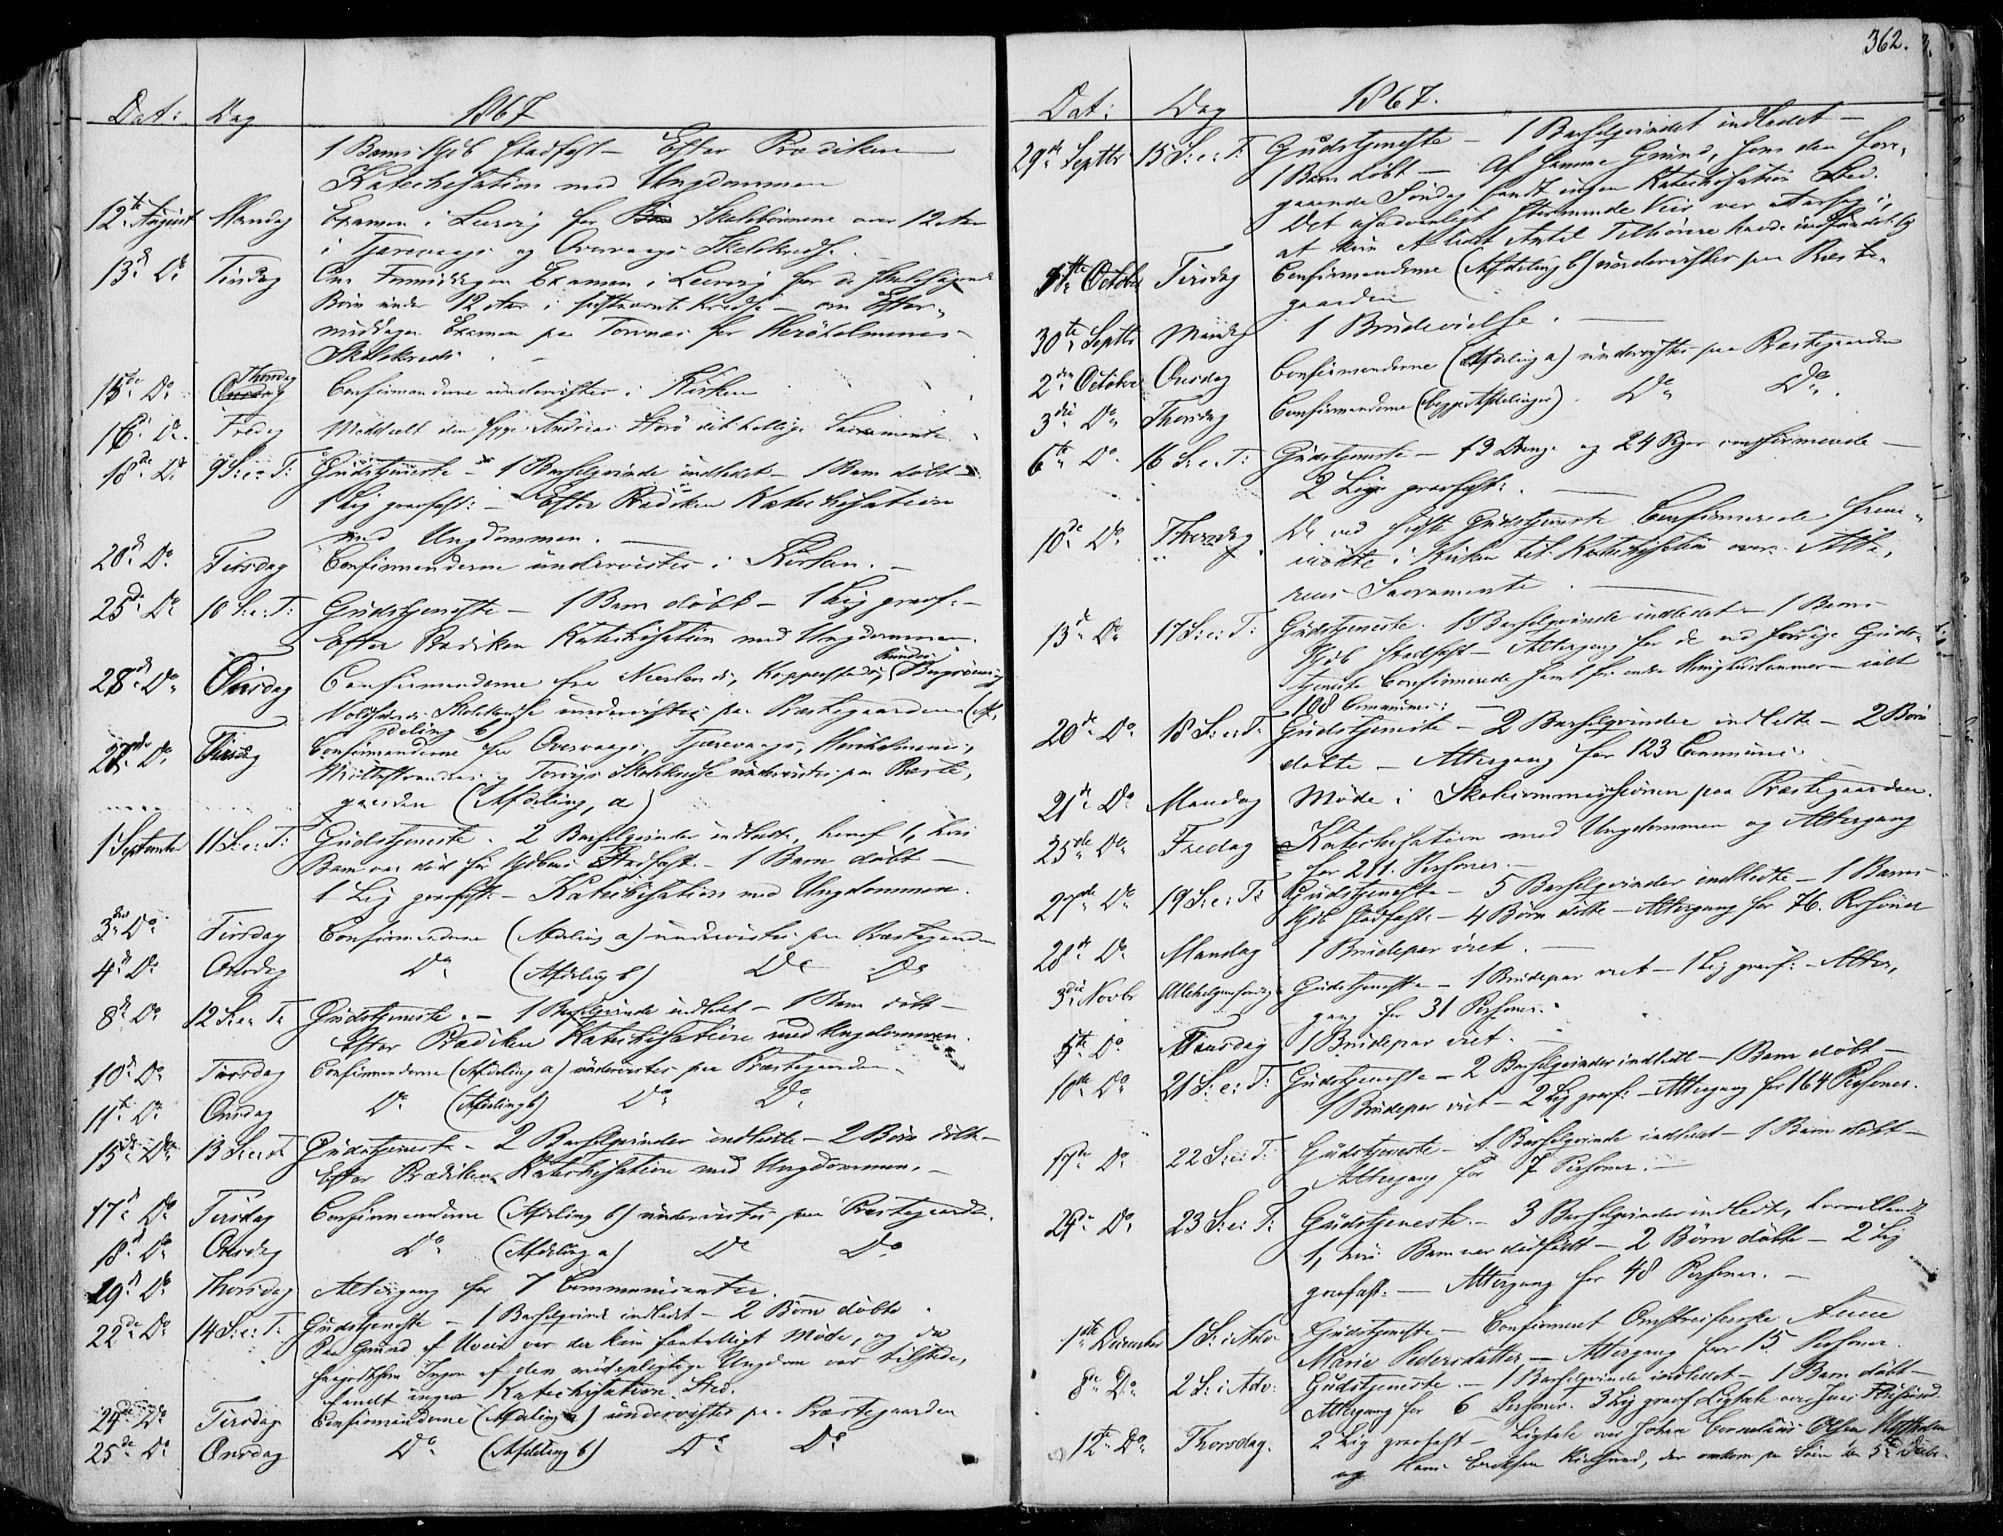 Dat: Dag 1867
1 Barns Hjdb stadfest – Efter Prædiken
Katechisation med Ungdommen
12te August Mandag Examen i Leervig for Skolebörnene over 12 Aar
i Tjærevaags og Overvaags Skolekreds.
13de Do Tirsdag Om Formiddagen Examen i Leervig for de skolesøgende
Börn under 12 Aar i sidstnævnte Kredse – om Efter-
middagen Examen paa Torvnæs for Herøholmenes
Skolekreds.
15de Do Thorsdag Confirmanderne underviste i Kirken
16de Do. Fredag Meddeelt den syge Andreas Storø det hellige Sacramente.
18de Do 9 S: e: T: Gudstjeneste – 1 Barselqvinde indledet – 1 Barn döbt –
1 Lig gravfest: – Efter Prædiken Katechisation
med Ungdommen. –
20de Do Tirsdag Confirmanderne undervistes i Kirken. –
25de Do 10 S: e: T: Gudstjeneste – 1 Barn döbt – 1 Lig gravf: –
Efter Prædiken Katechisation med Ungdommen.
28de Do Onsdag Confirmanderne fra
Skolekredse undervistes paa Præstegaarden (Af-
deling b)
27de Do. Tirsdag Confirmanderne fra Overvaags, Tjærevaags,
og Torvigs Skolekredse undervistes paa Præste-
gaarden (Afdeling a)
1 September 11 S: e: T: Gudstjeneste. 2 Barselqvinder indledte, heraf 1, hvis
Barn var död för Hjdbens Stadfest: – 1 Barn döbt –
1 Lig gravfest: – Katechisation med Ungdommen.
3die Do Tirsdag Confirmanderne (Afdeling a) undervistes paa Præstegaarden
4de Do Onsdag Do (Afdeling b) Do Do
8de Do 12 S: e: T: Gudstjeneste. – 1 Barselqvinde indledet – 1 Barn döbt –
Efter Prædiken Katechisation med Ungdommen.
10de Do Tirsdag Confirmanderne (Afdeling a) undervistes paa Præstegaarden
11te Do Onsdag Do (Afdeling b) Do Do
15de Do 13 S: e: T: Gudstjeneste – 2 Barselqvinder indledte – 2 Börn döbt –
Efter Prædiken Katechisation med Ungdommen. –
17de Do Tirsdag Confirmanderne (Afdeling b) undervistes paa Præstegaarden.
18de Do Onsdag Do (Afdeling a) Do Do
19de Do Thorsdag Altergang for 7 Communicanter.
22de Do 14 S: e: T: Gudstjeneste – 1 Barselqvinde indledet – 2 Börn döbte.
Paa Grund af Uveir var der kun faatalligt Möde, og da
Ingen af den mödepligtige Ungdom var tilstede,
fandt ingen Katechisation Sted.
24de Do Tirsdag Confirmanderne (Afdeling a) undervistes paa Præstegaarden
25de Do Onsdag Do (Afdeling b) Do Do
362.
Dat: Dag 1867.
29de Septbr 15 S: e: T: Gudstjeneste – 1 Barselqvinde indledet –
1 Barn döbt – Af samme Grund, som den fore-
gaaende Söndag fandt ingen Katechisation Sted.
Det usædvanligt stormende Veir var Aarsag i,
at kun et lidet Antal Tilhörere havde indfundet sig
1ste October Tirsdag Confirmanderne (Afdeling b) undervistes paa Præste-
gaarden
30te Septbr Mandag 1 Brudevielse.
2den October Onsdag Confirmanderne (Afdeling a) undervistes paa Præstegaarden
3die Do Thorsdag Confirmanderne (begge Afdelinger). Do Do.
6te Do 16 S: e: T: Gudstjeneste – 13 Drenge og 24 Piger confirmerede –
2 Lig gravfest:. –
10de Do Thorsdag De ved sidste Gudstjeneste Confirmerede frem-
mödte i Kirken til Katechisation over Alte-
rens Sacramente
13de Do 17 S: e: T: Gudstjeneste. 1 Barselqvinde indledet – 1 Barns
Hjdb stadfest – Altergang for de ved forrige Guds-
tjeneste Confirmerede samt for endre Menighedslemmer – ialt
108 Communic:
20de Do 18 S: e: T: Gudstjeneste – 2 Barselqvinder indledte – 2 Börn
döbte – Altergang for 123 Communic:
21de Do Mandag Möde i Skolecommissionen paa Præstegaarden.
25de Do Fredag Katechisation med Ungdommen og Altergang
for 211 Personer. –
27de Do 19 S: e: T: Gudstjeneste – 5 Barselqvinder indledte – 1 Barns
Hjdb stadfest: – 4 Börn döbte – Altergang for 76. Personer
28de Do Mandag 1 Brudepar viet. –
3die Novbr Allehelgensöndag Gudstjeneste – 1 Brudepar viet – 1 Lig gravf: – Alter-
gang for 31 Personer.
5te Do Tirsdag 1 Brudepar viet. –
10de Do 21 S: e: T: Gudstjeneste – 2 Barselqvinder indledte – 1 Barn döbt –
1 Brudepar viet – 2 Lig gravf: – Altergang for 164 Personer.
17de Do 22 S: e: T: Gudstjeneste – 1 Barselqvinde indledet – 1 Barn döbt –
Altergang for 7 Personer. –
24de Do 23 S: e: T: Gudstjeneste. – 3 Barselqvinder indledte, hvoriblandt
1, hvis Barn var dödfödt – 2 Börn döbte – 2 Lig
gravfest: – Altergang for 48 Personer. –
1ste December 1 S: i Adv: Gudstjeneste – Confirmeret Omstreiferske Anne
Marie Pedersdatter, – Altergang for 15 Personer.
8de Do 2 S: i Adv: Gudstjeneste – 1 Barselqvinde indledet – 1 Barn döbt –
Altergang for 6 Personer. 3 Lig gravf: Ligtale over
12te Do Thorsdag. 2 Lig gravfest – Ligtale over Johan Cornelius Olsen
og Hans Ericksen, der omkom paa Söen den 5te Decbr.